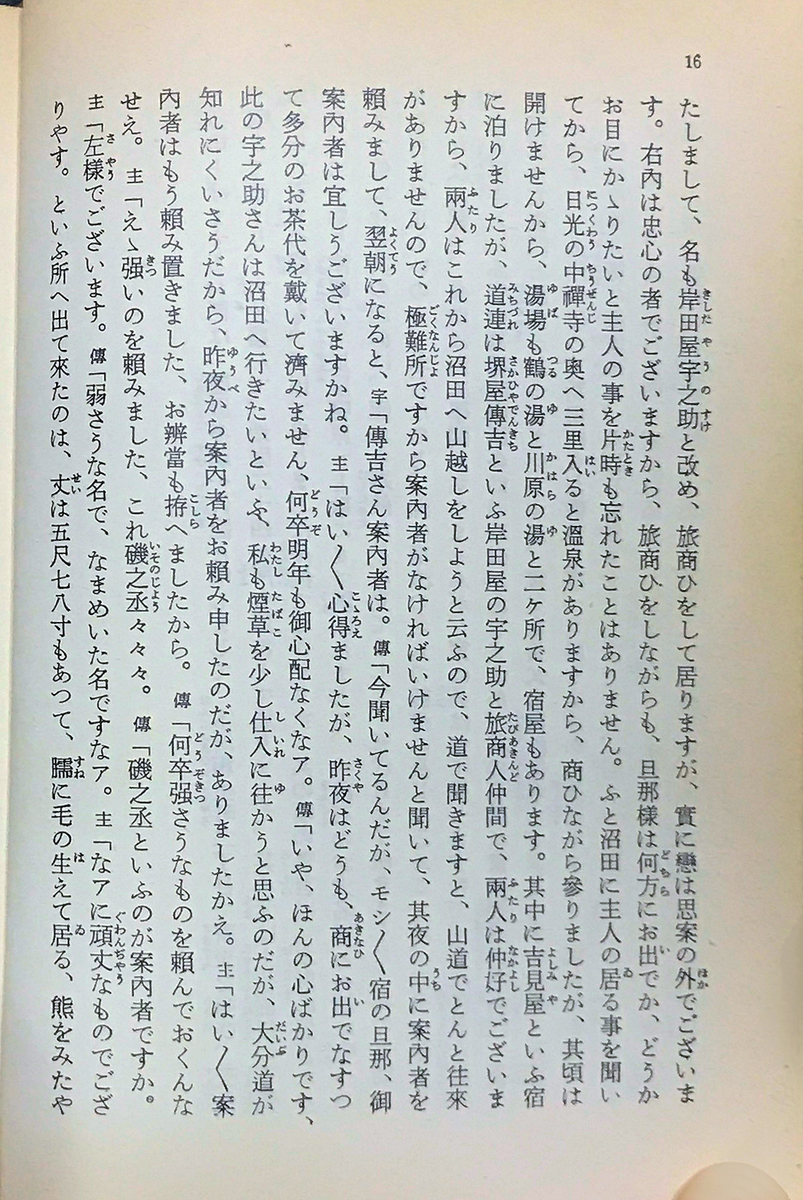 16
たしまして、名も岸田屋宇之助と改め、旅商ひをして居りますが、實に戀は思案の外でございま
す。右內は忠心の者でございますから、旅商ひをしながらも、旦那樣は何方にお出でか、どうか
お目にかゝりたいと主人の事を片時も忘れたことはありません。ふと沼田に主人の居る事を聞い
てから、日光の中禪寺の奧へ三里入ると溫泉がありますから、商ひながら參りましたが、其頃は
開けませんから、湯場も鶴の湯と川原の湯と二ケ所で、宿屋もあります。其中に吉見屋といふ宿
に泊りましたが、道連は堺屋傳吉といふ岸田屋の宇之助と旅商人仲間で、兩人は仲好でございま
すから、兩人はこれから沼田へ山越しをしようと云ふので、道で聞きますと、山道でとんと往來
がありませんので、極難所ですから案內者がなければいけませんと聞いて、其夜の中に案內者を
賴みまして、翌朝になると、宇「傳吉さん案內者は。傳「今聞いてるんだが、モシ〱宿の旦那、御
案內者は宜しうございますかね。主「はい〱心得ましたが、昨夜はどうも、商にお出でなすつ
て多分のお茶代を戴いて濟みません、何卒明年も御心配なくなア。傳「いや、ほんの心ばかりです、
此の宇之助さんは沼田へ行きたいといふ、私も煙草を少し仕入に往かうと思ふのだが、大分道が
知れにくいさうだから、昨夜から案內者をお賴み申したのだが、ありましたかえ。主「はい〱案
內者はもう賴み置きました、お辨當も拵へましたから。傳「何卒强さうなものを賴んでおくんな
せえ。主「えゝ强いのを賴みました、これ磯之丞々々々。傳「磯之丞といふのが案內者ですか。
主「左樣でございます。傳「弱さうな名で、なまめいた名ですなア。主「なアに頑丈なものでござ
りやす。といふ所へ出て來たのは、丈は五尺七八寸もあつて、臑に毛の生えて居る、熊をみたや